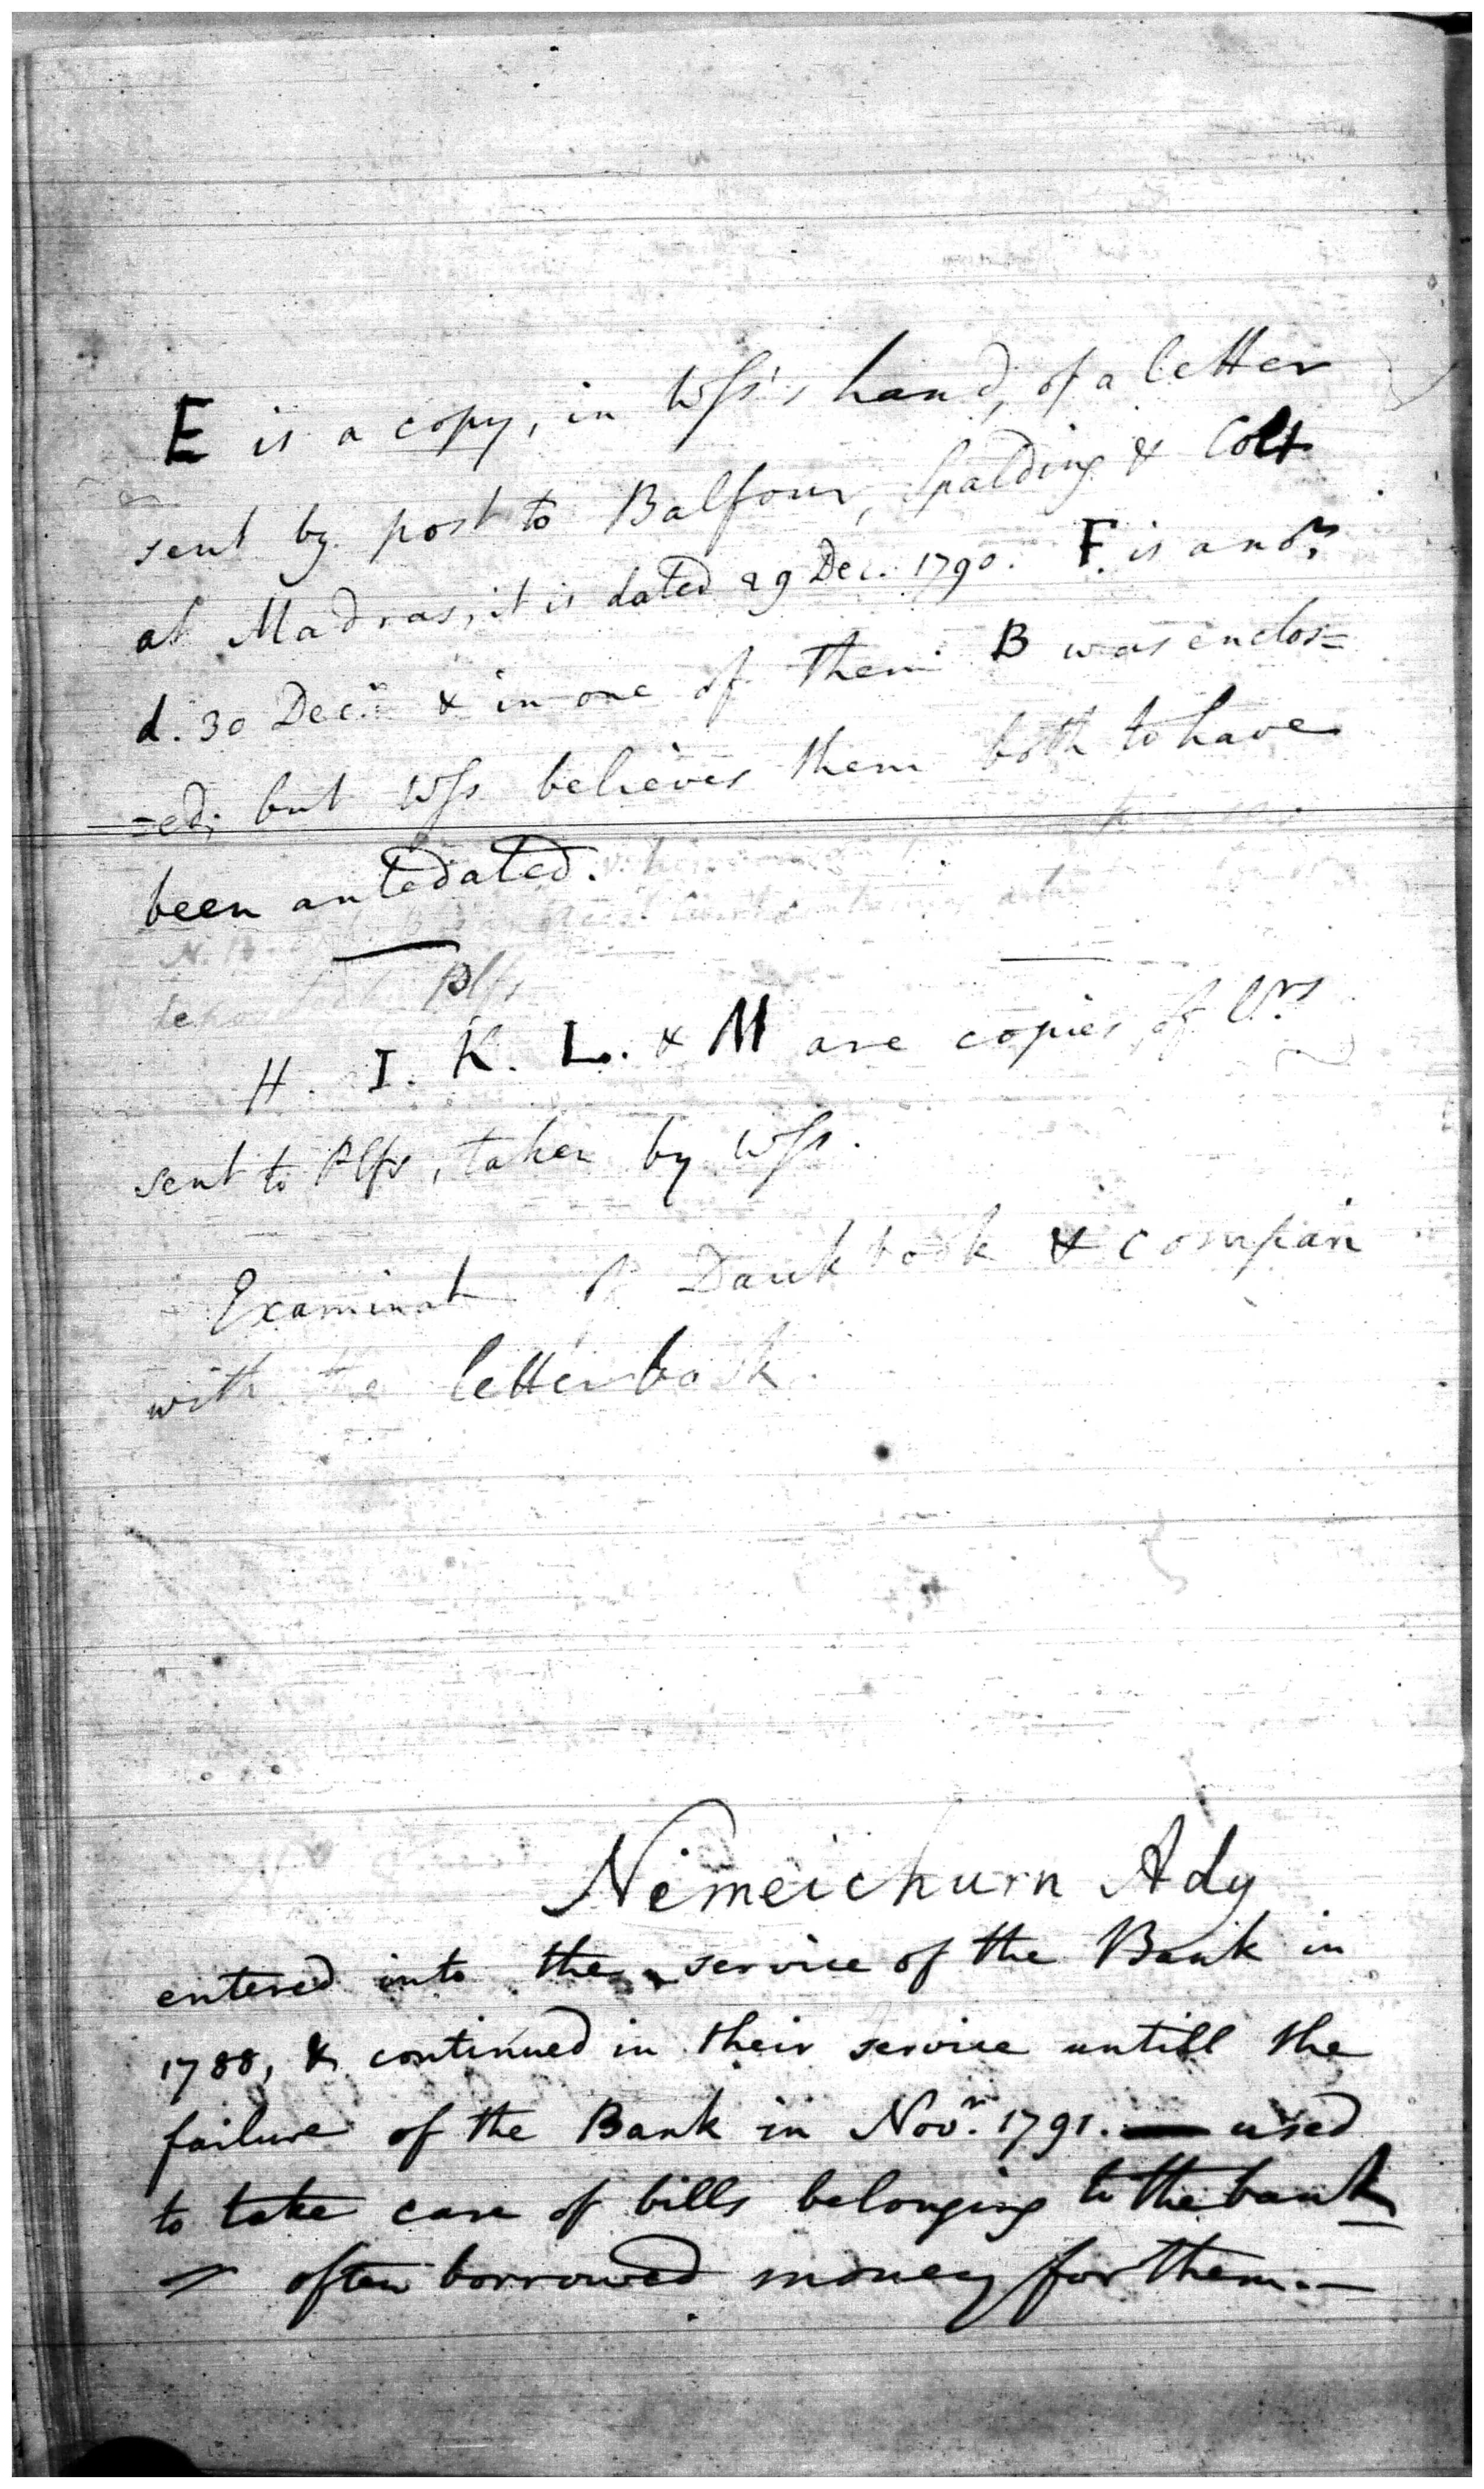 E is a copy, in Wss's hand, of a letter
sent by post to Balfour, Spalding & Colt
at Madras, it is dated 29 Dec. 1790. F. is anoʳ.
d. 30 Decʳ. & in one of them B was enclos=
=ed; but Wss believes them both to have
been antedated.
N. B.
Plfs
H. I. K. L. & M are copies of lʳˢ
sent to Plfs, taken by Wss.
Examinat of Dauk book & compari
with the letter book.
Nemeichurn Ady
entered into the service of the Bank in
1788, & continued in their service untill the
failure of the Bank in Novʳ. 1791. — used
to take care of bills belonging to the bank
& often borrowed money for them.—